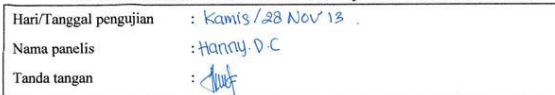 Hari/Tanggal pengujian : Kamis/28 Nov'13 .
Nama panelis : Hanny.D.C
Tanda tangan :